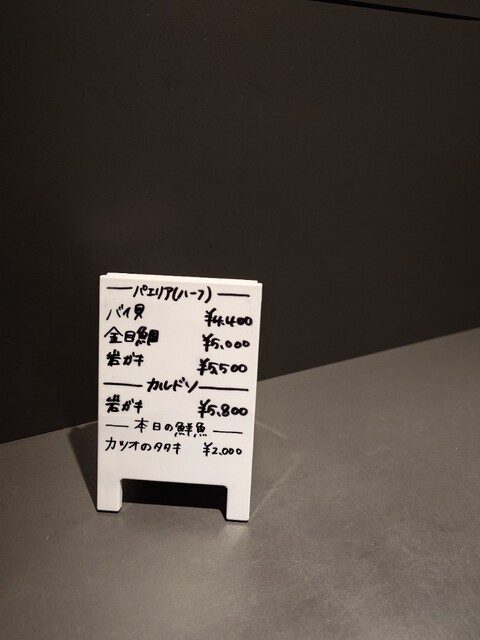 パエリア(ハーフ)
バイ貝 ¥4,400
金目鯛 ¥5,000
岩ガキ ¥5,500
カルドソ
岩ガキ ¥5,800
本日の鮮魚
カツオのタタキ ¥2,000